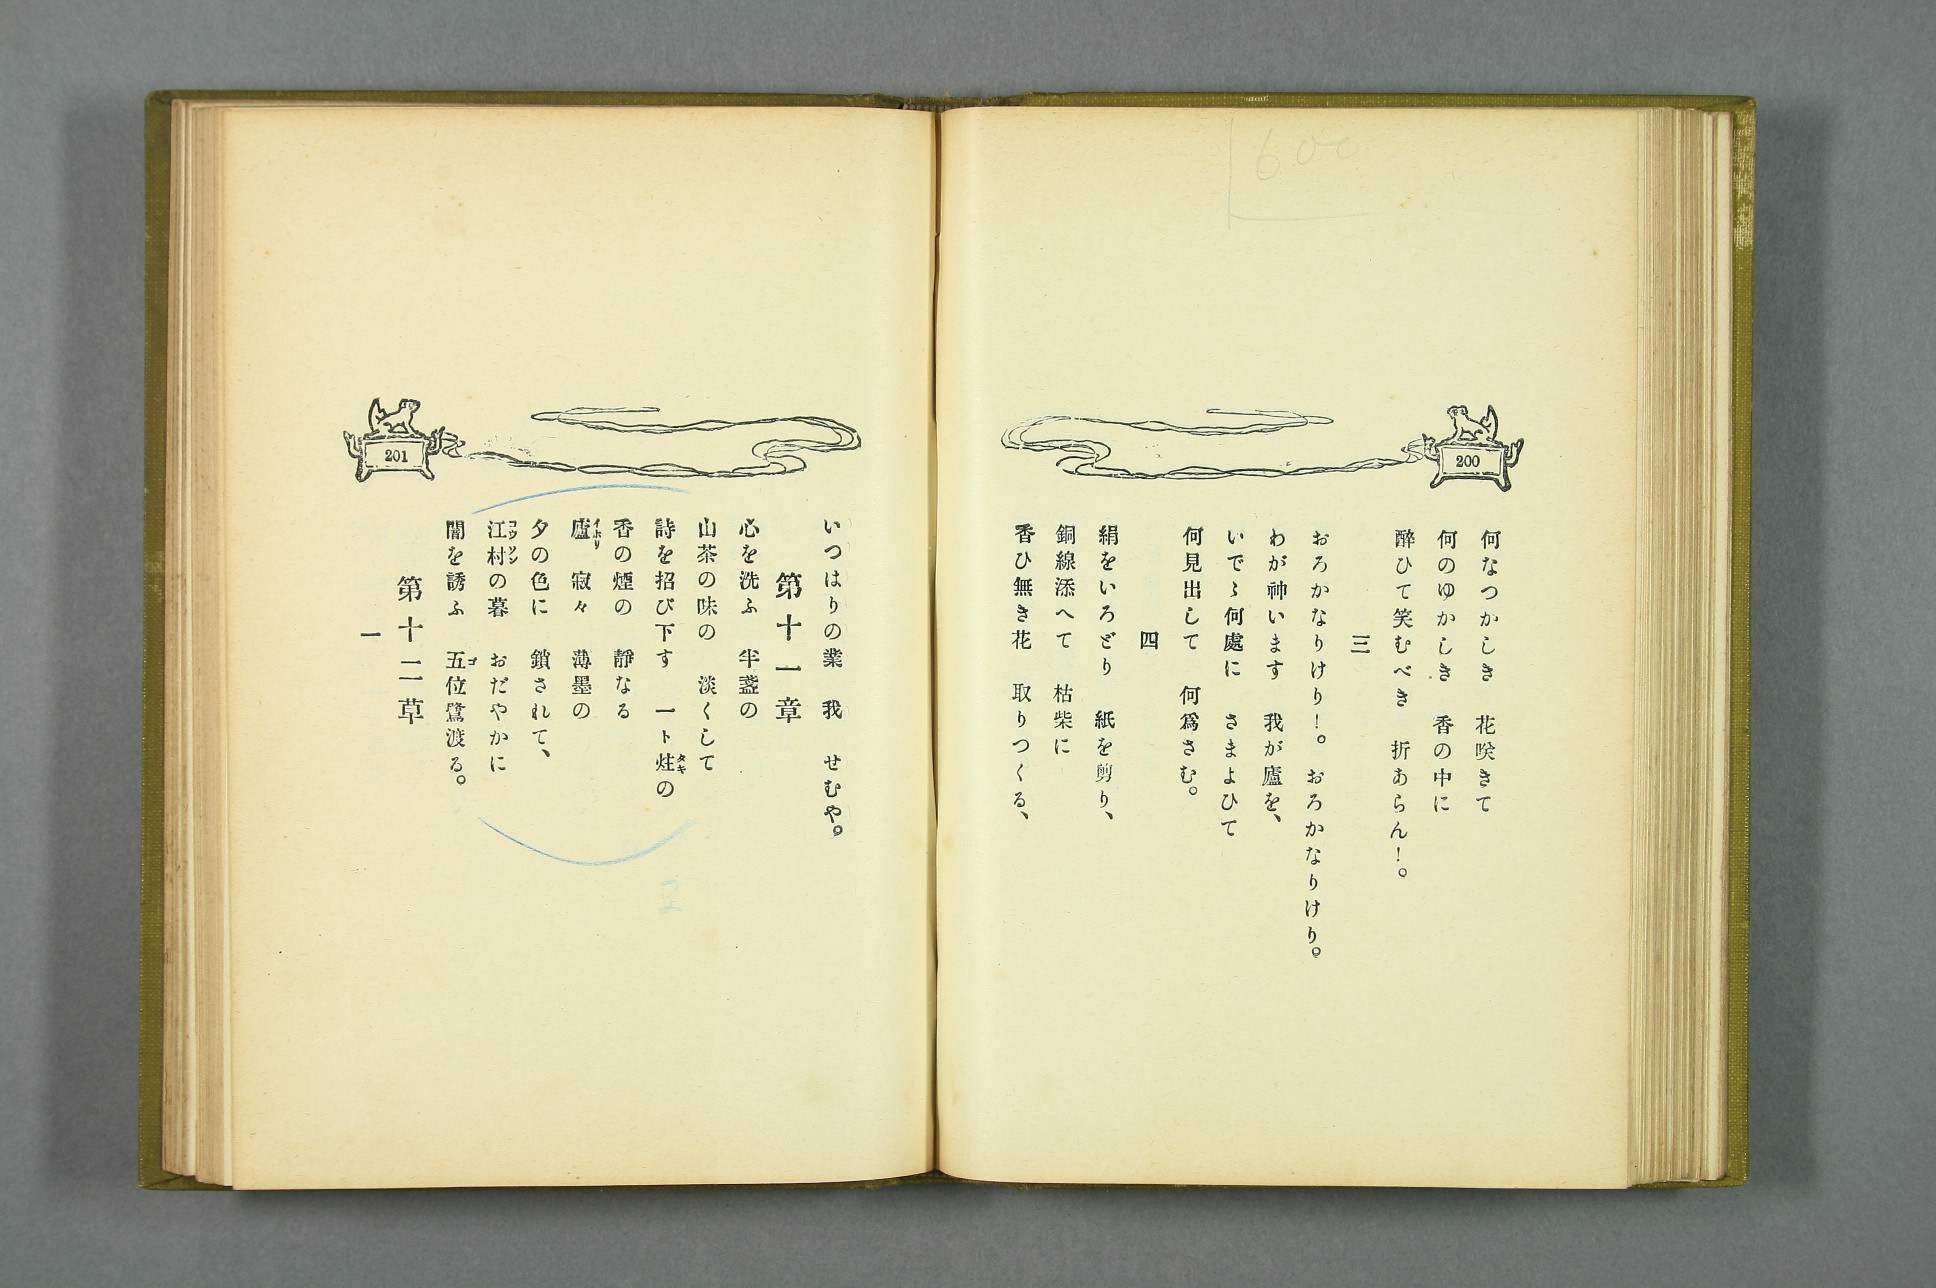 6.00
200
何なつかしき　花咲きて
何のゆかしき　香の中に
醉ひて笑むべき　折あらん！。
三
おろかなりけり！。おろかなりけり。
わが神います　我が廬を、
いでゝ何處に　さまよひて
何見出して　何爲さむ。
四
絹をいろどり　紙を剪り、
銅線添へて　枯柴に
香ひ無き花　取りつくる、
201
いつはりの業　我　せむや。
第十一章
心を洗ふ　半盞の
山茶の味の　淡くして
詩を招び下す　一ト炷タキの
香の煙の　靜なる
廬イホリ　寂々　薄墨の
夕の色に　鎖されて、
江村コウソンの暮　おだやかに
闇を誘ふ　五ゴ位鷺渡る。
第十二草
一